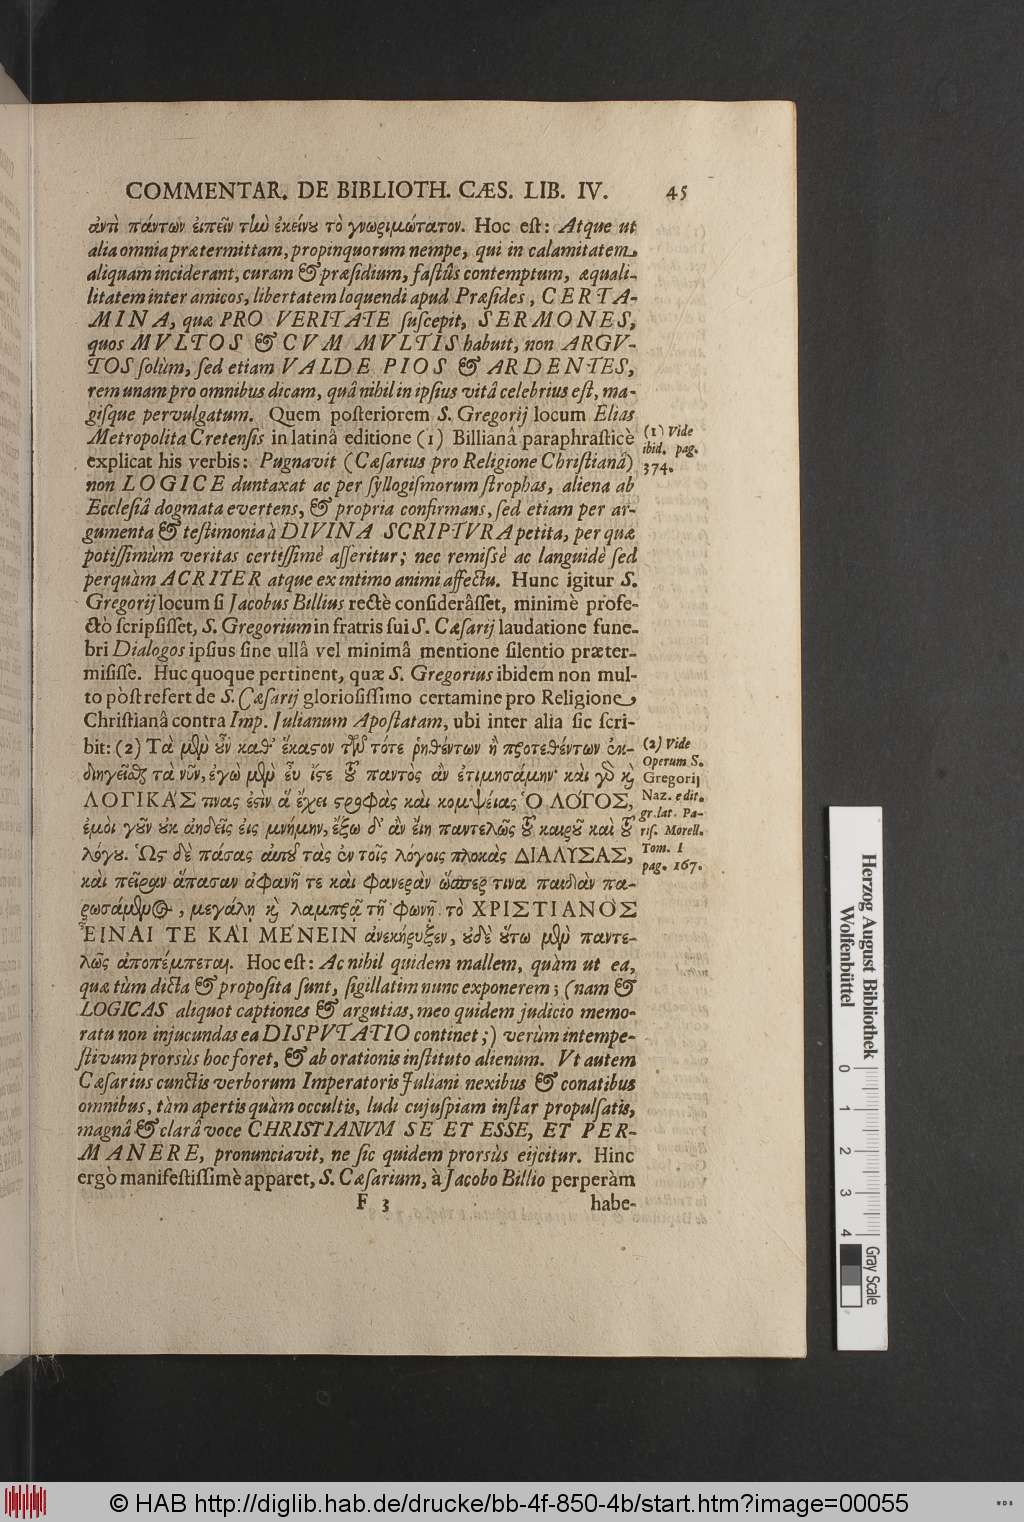 COMMENTAR. DE BIBLIOTH. CÆS. LIB. IV. 45
ἀντὶ πάντων εἰπεῖν τὴν ἐκείνου τὸ γνωριμώτατον. Hoc eſt: Atque ut
alia omnia prætermittam, propinquorum nempe, qui in calamitatem
aliquam inciderant, curam & præſidium, faſtûs contemptum, æquali-
litatem inter amicos, libertatem loquendi apud Præſides, CERTA-
MINA, quæ PRO VERITATE ſuſcepit, SERMONES,
quos MVLTOS & CVM MVLTIS habuit, non ARGV-
TOS ſolùm, ſed etiam VALDE PIOS & ARDENTES,
rem unam pro omnibus dicam, quâ nihil in ipſius vitâ celebrius eſt, ma-
giſque pervulgatum. Quem poſteriorem S. Gregorij locum Elias
Metropolita Cretenſis in latinâ editione (1) Billianâ paraphraſticè
explicat his verbis: Pugnavit (Cæſarius pro Religione Chriſtianâ)
non LOGICE duntaxat ac per ſyllogiſmorum ſtrophas, aliena ab
Eccleſiâ dogmata evertens, & propria confirmans, ſed etiam per ar-
gumenta & teſtimonia à DIVINA SCRIPTVRA petita, per quæ
potiſſimùm veritas certiſſimè aſſeritur; nec remiſsè ac languidè ſed
perquàm ACRITER atque ex intimo animi affectu. Hunc igitur S.
Gregorij locum ſi Jacobus Billius rectè conſiderâſſet, minimè profe-
ctò ſcripſiſſet, S. Gregorium in fratris ſui S. Cæſarij laudatione fune-
bri Dialogos ipſius ſine ullâ vel minimâ mentione ſilentio præter-
miſiſſe. Huc quoque pertinent, quæ S. Gregorius ibidem non mul-
to pòſt refert de S. Cæſarij glorioſiſſimo certamine pro Religione
Chriſtianâ contra Imp. Julianum Apoſtatam, ubi inter alia ſic ſcri-
bit: (2) Τὰ μὲν οὖν καθ' ἕκαστον τῶν τότε ῥηθέντων ἢ προτεθέντων ἐκ-
διηγεῖσθαι τὰ νῦν, ἐγὼ μὲν εὖ ἴστε τοῦ παντὸς ἂν ἐτιμησάμην· καὶ γὰρ καὶ
ΛΟΓΙΚΑΣ τινας ἐστὶν ἃ ἔχει στροφὰς καὶ κομψείας Ὁ ΛΟΓΟΣ,
ἐμοὶ γοῦν οὐκ ἀηδεῖς εἰς μνήμην, ἔξω δ' ἂν εἴη παντελῶς τοῦ καιροῦ καὶ τοῦ
λόγου. Ὡς δὲ πάσας αὐτοῦ τὰς ἐν τοῖς λόγοις πλοκὰς ΔΙΑΛΥΣΑΣ,
καὶ πεῖραν ἅπασαν ἀφανῆ τε καὶ φανερὰν ὥσπερ τινα παιδιὰν πα-
ρωσάμενος, μεγάλῃ καὶ λαμπρᾷ τῇ φωνῇ τὸ ΧΡΙΣΤΙΑΝΟΣ
ΕΙΝΑΙ ΤΕ ΚΑΙ ΜΕΝΕΙΝ ἀνεκήρυξεν, οὐδὲ οὕτω μὲν παντε-
λῶς ἀποπέμπεται. Hoc eſt: Ac nihil quidem mallem, quàm ut ea,
quæ tùm dicta & propoſita ſunt, ſigillatim nunc exponerem; (nam &
LOGICAS aliquot captiones & argutias, meo quidem judicio memo-
ratu non injucundas ea DISPVTATIO continet;) verùm intempe-
ſtivum prorsùs hoc foret, & ab orationis inſtituto alienum. Vt autem
Cæſarius cunctis verborum Imperatoris Juliani nexibus & conatibus
omnibus, tàm apertis quàm occultis, ludi cujuſpiam inſtar propulſatis,
magnâ & clarâ voce CHRISTIANVM SE ET ESSE, ET PER-
MANERE, pronunciavit, ne ſic quidem prorsùs eijcitur. Hinc
ergò manifeſtiſſimè apparet, S. Cæſarium, à Jacobo Billio perperàm
F 3 habe-
(1) Vide
ibid. pag.
374.
(2) Vide
Operum S.
Gregorij
Naz. edit.
gr. lat. Pa-
riſ. Morell.
Tom. I
pag. 167.
Herzog August Bibliothek
Wolfenbüttel
0 1 2 3 4
Gray Scale
© HAB http://diglib.hab.de/drucke/bb-4f-850-4b/start.htm?image=00055